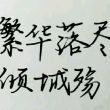 繁华落尽
倾城殇